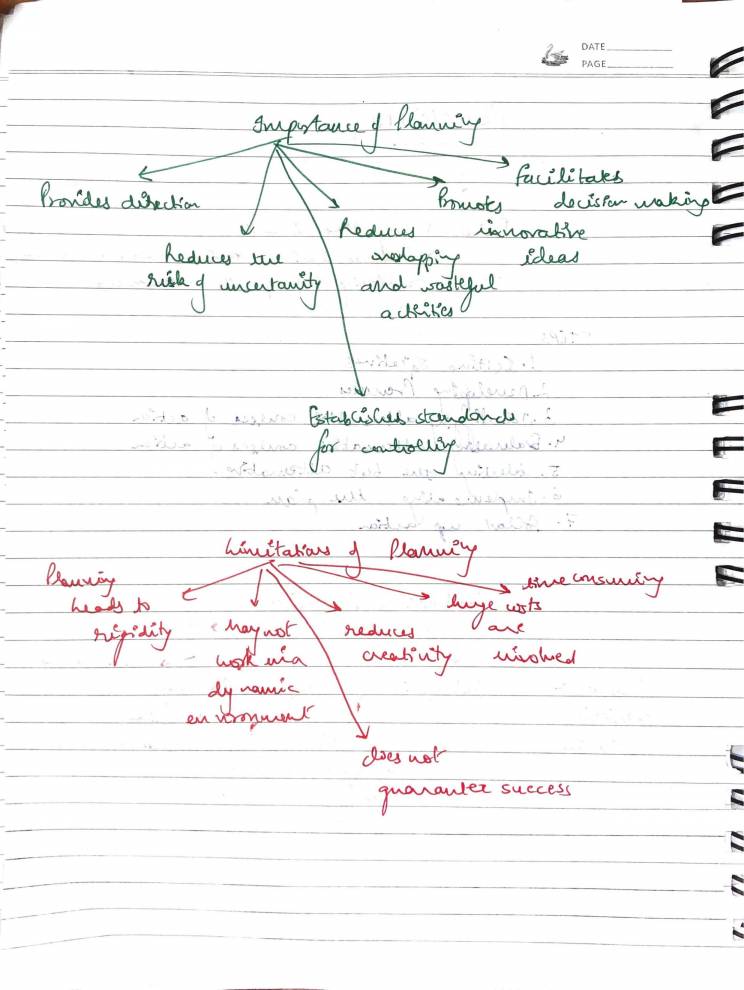 DATE
PAGE
Importance of Planning
Provides direction
Reduces the
risk of uncertanity
Establishes standards
for controlling
Reduces
overlapping
and wasteful
activities
Promotes
innovative
ideas
facilitates
decision making
Limitations of Planning
Planning
leads to
rigidity
May not
work in a
dynamic
environment
does not
guarantee success
reduces
creativity
huge costs
are
involved
time consuming